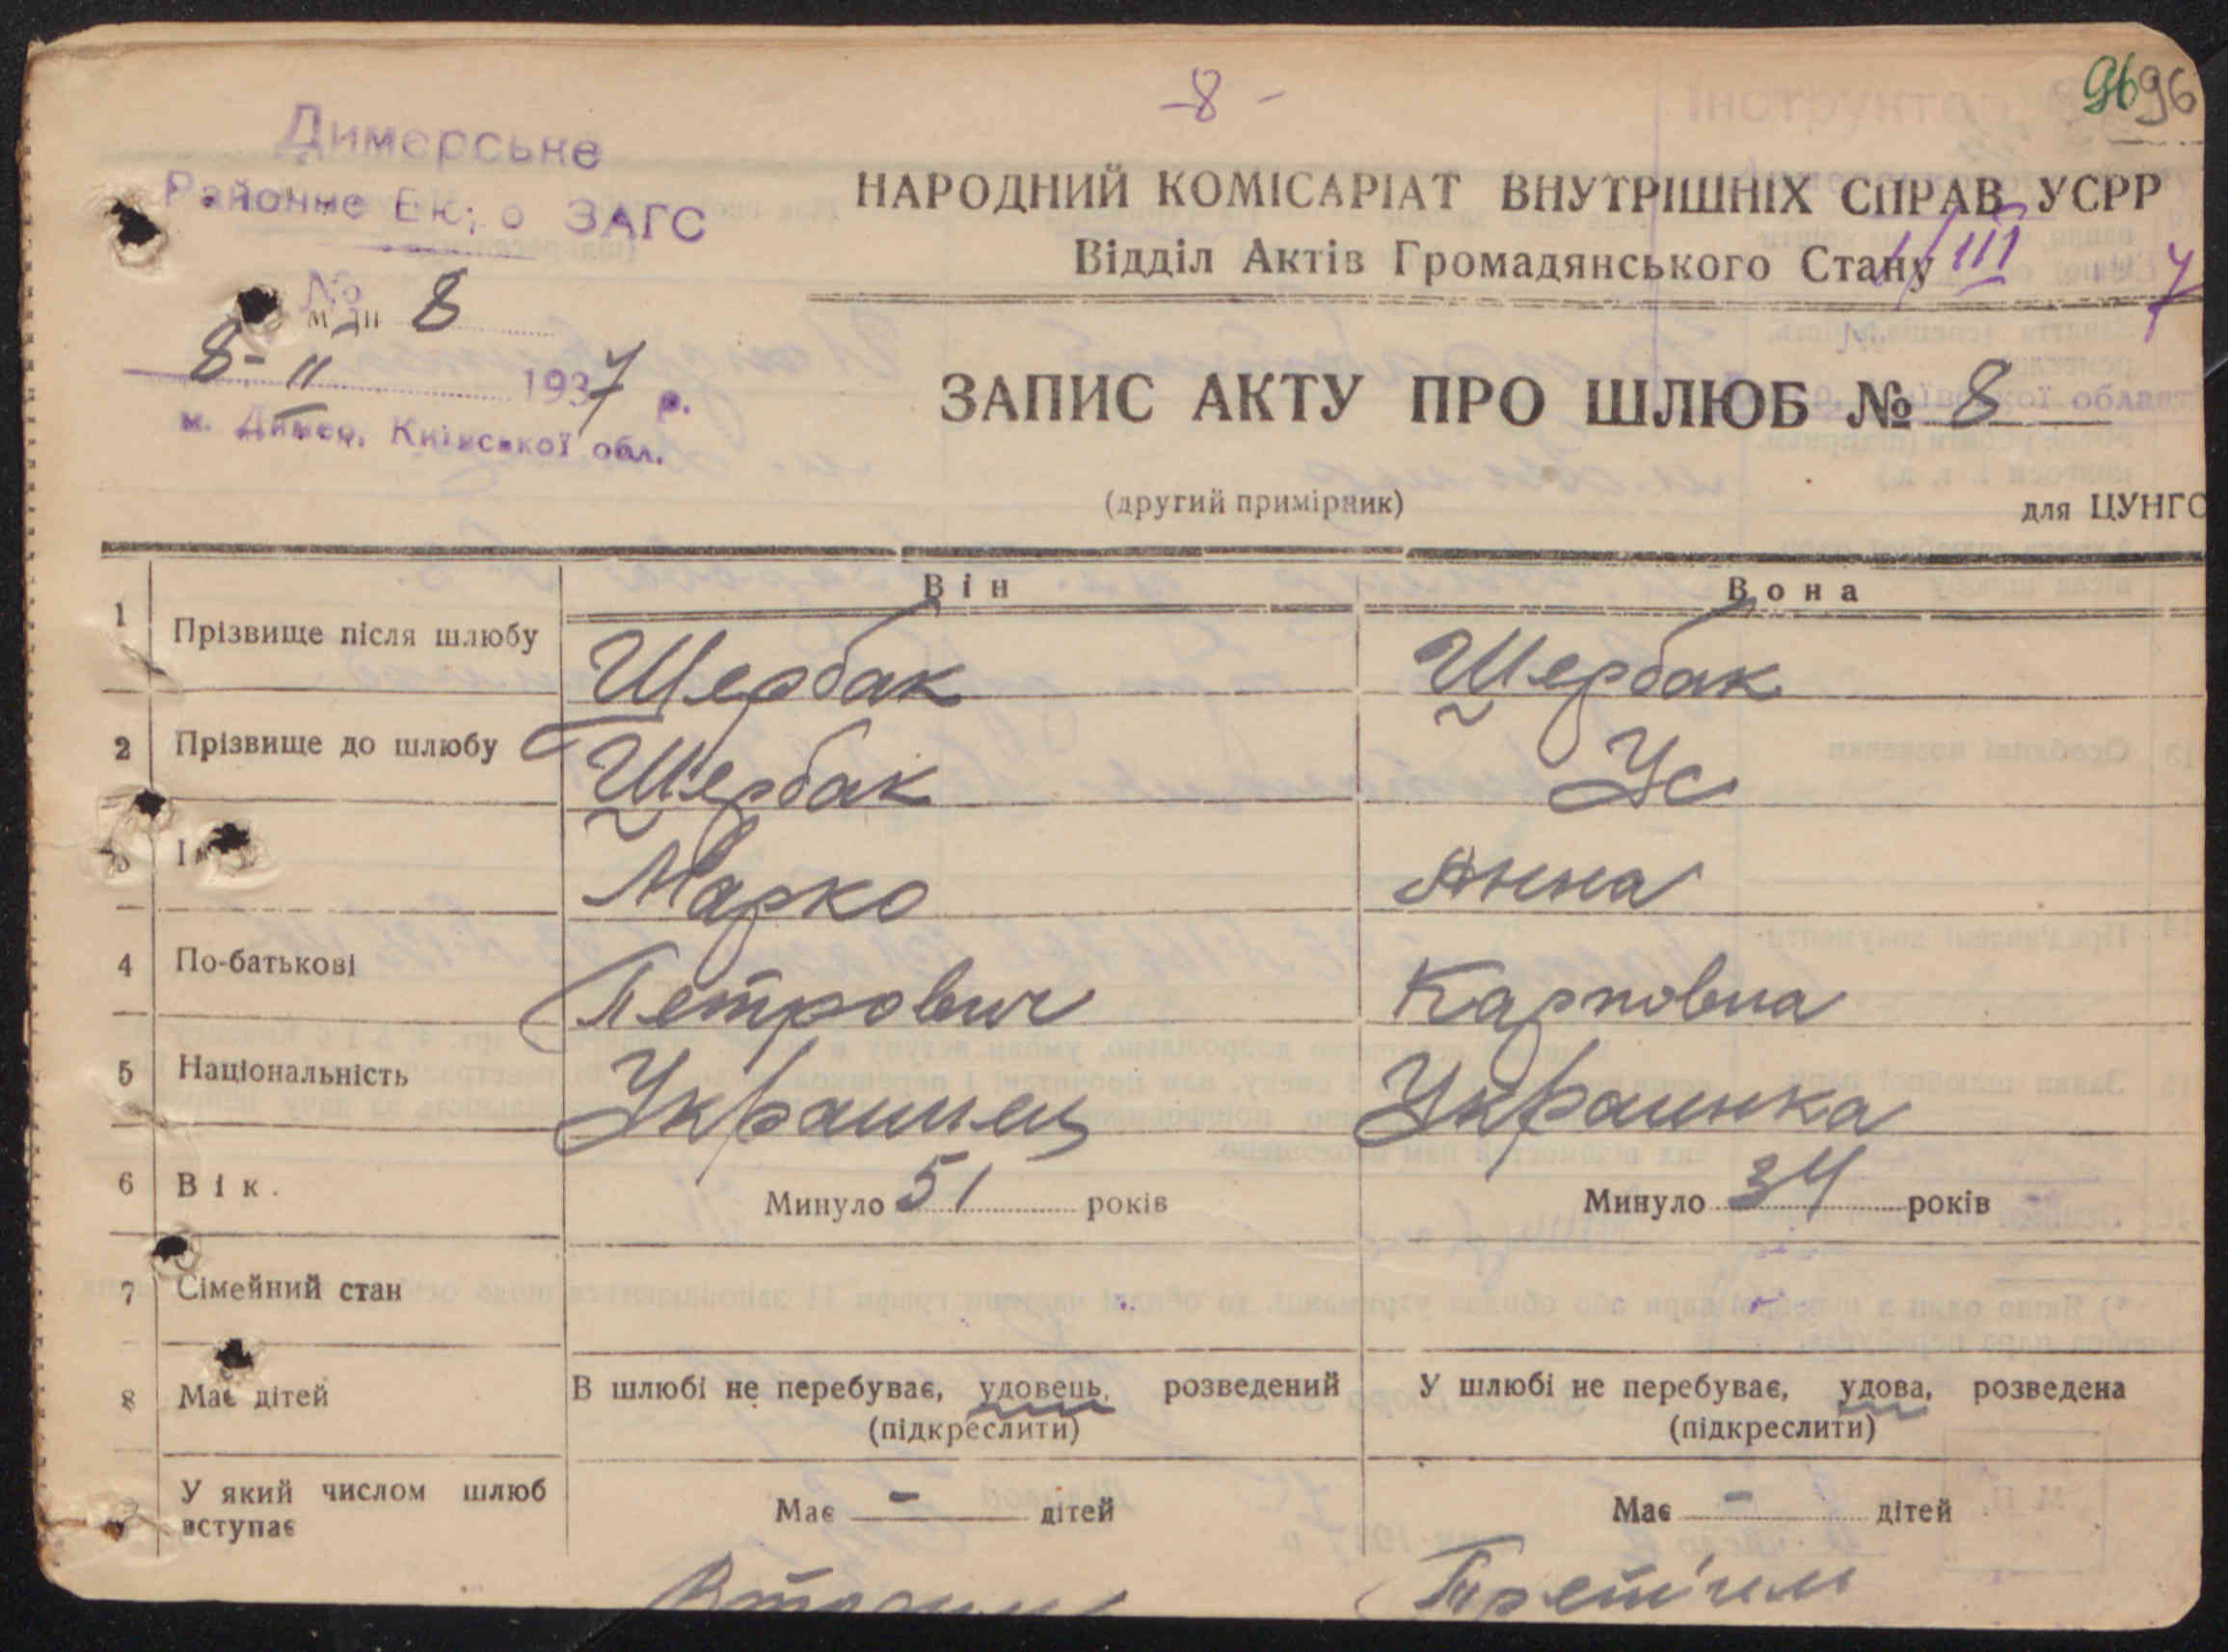 -8-
9696
Димерське
Районне Бюро ЗАГС
НАРОДНИЙ КОМІСАРІАТ ВНУТРІШНІХ СПРАВ УСРР
Відділ Актів Громадянського Стану
III 7
№ 8
8-II 1937 р.
м. Димер, Київської обл.
ЗАПИС АКТУ ПРО ШЛЮБ № 8
(другий примірник)
для ЦУНГО
Він Вона
1 Прізвище після шлюбу Щербак Щербак
2 Прізвище до шлюбу Щербак Ус
3 І Марко Анна
4 По-батькові Петрович Карповна
5 Національність Украинец Украинка
6 Вік. Минуло 51 років Минуло 34 років
7 Сімейний стан
8 Має дітей В шлюбі не перебуває, удовець, розведений У шлюбі не перебуває, удова, розведена
(підкреслити) (підкреслити)
У який числом шлюб
вступає Має - дітей Має - дітей
Вторым Третім